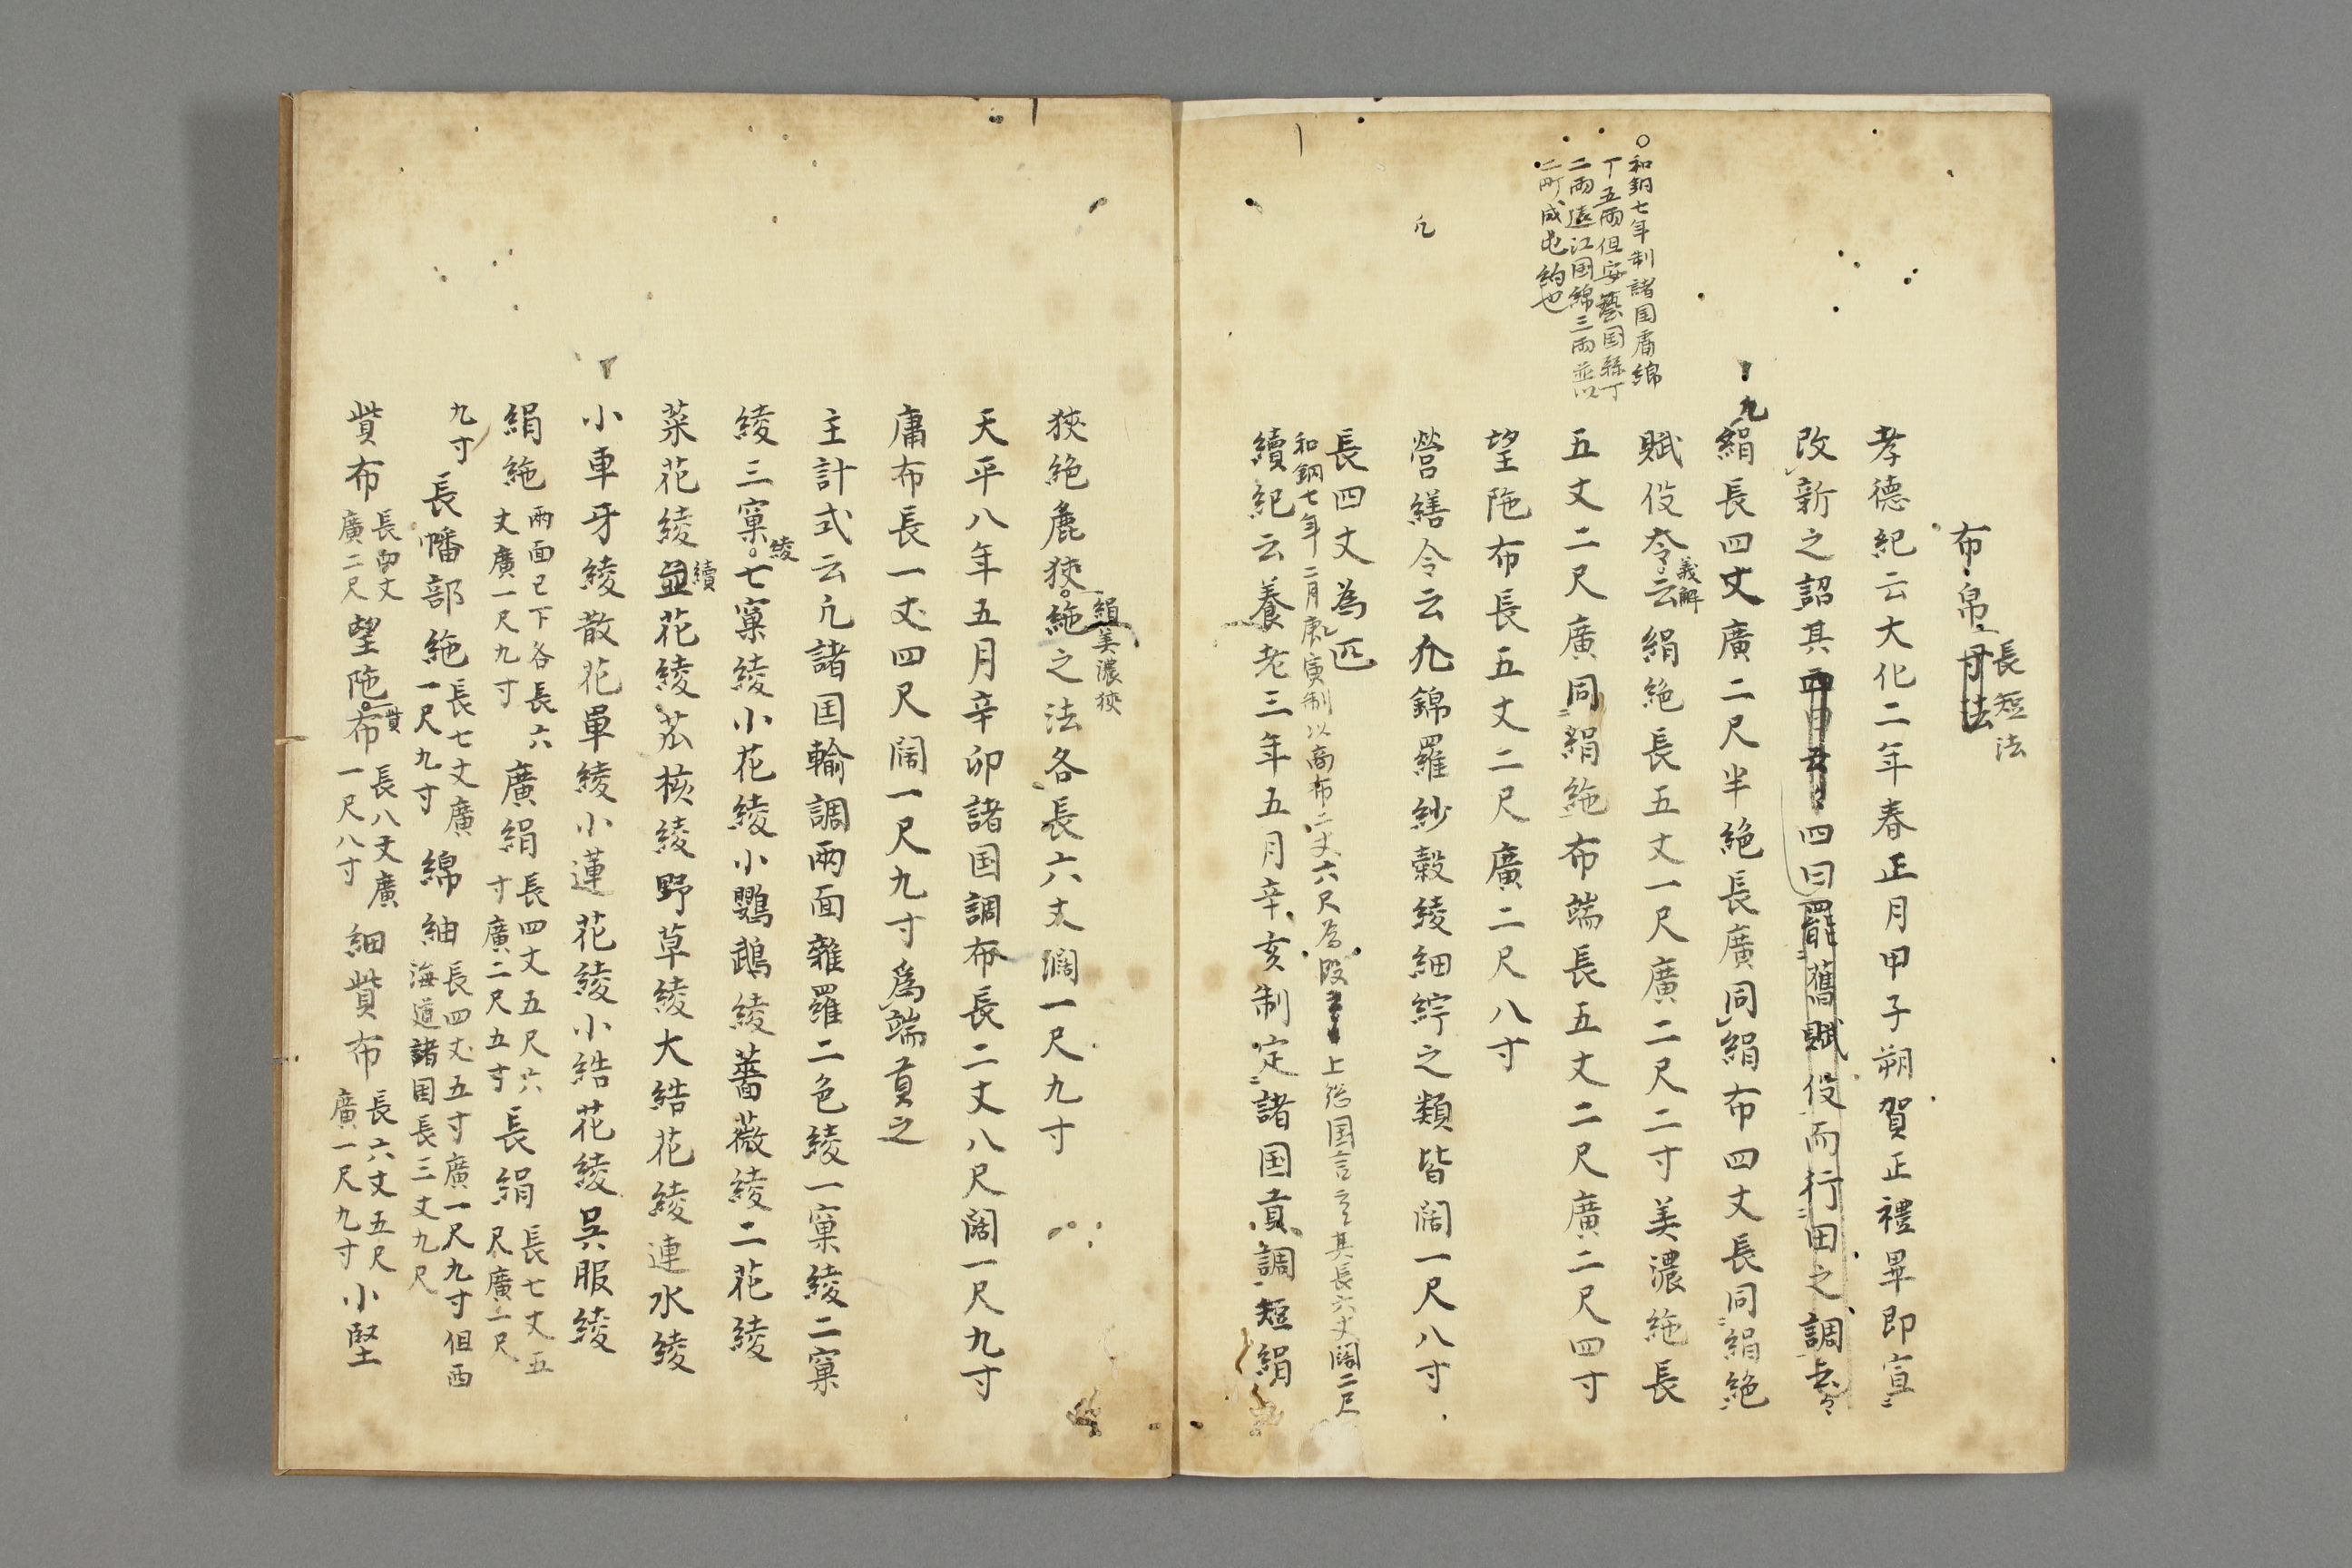 布帛寸法
長短法
孝德紀云大化二年春正月甲子朔賀正禮畢即宣
改新之詔其四曰罷舊賦役而行田之調云々
凡絹長四丈廣二尺半絁長廣同絹布四丈長同絹絁
賦役令云絹絁長五丈一尺廣二尺二寸美濃絁長
義解
五丈二尺廣同絹絁布端長五丈二尺廣二尺四寸
望陁布長五丈二尺廣二尺八寸
營繕令云凡錦羅紗縠綾細紵之類皆闊一尺八寸
長四丈為匹
和銅七年二月庚寅制以商布二丈六尺為段
上総国言云々其長六丈闊二尺
續紀云養老三年五月辛亥制定諸国貢調短絹
和銅七年制諸国庸綿
丁五両但安藝国絲丁
二両遠江国綿三両並以
二町成屯約也
凡
狹絁麁狹絁之法各長六丈濶一尺九寸
絹美濃狹
天平八年五月辛卯諸国調布長二丈八尺闊一尺九寸
庸布長一丈四尺闊一尺九寸為端貢之
主計式云凡諸国輸調兩面雜羅二色綾一窠綾二窠
綾三窠七窠綾小花綾小鸚鵡綾薔薇綾二花綾
綾
菜花綾花綾菰核綾野草綾大䋀花綾連水綾
續
小車牙綾散花單綾小蓮花綾小䋀花綾吳服綾
絹絁兩面已下各長六丈廣一尺九寸廣絹長四丈五尺六寸廣二尺五寸長絹長七丈五尺廣二尺
九寸長幡部絁長七丈廣一尺九寸綿紬長四丈五寸廣一尺九寸但西海道諸国長三丈九尺
貲布長四丈廣二尺望陁布長八丈廣一尺八寸細貲布長六丈五尺廣一尺九寸小堅
貲